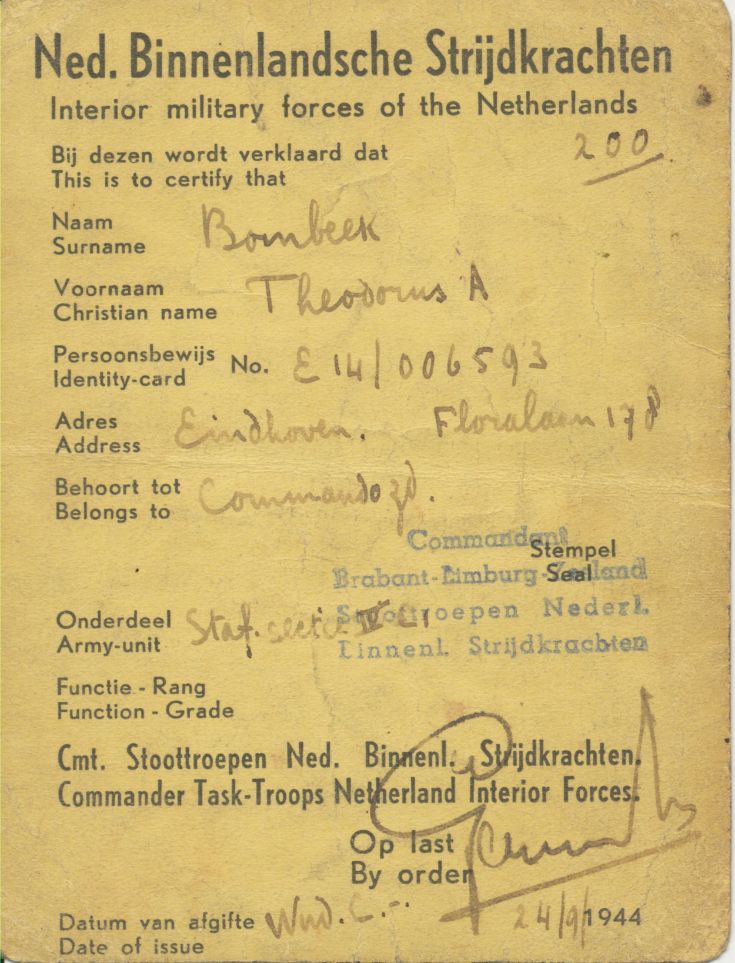 Ned. Binnenlandsche Strijdkrachten
Interior military forces of the Netherlands
200
Bij dezen wordt verklaard dat
This is to certify that
Naam
Surname
Bombeek
Voornaam
Christian name
Theodorus A
Persoonsbewijs
Identity-card
No. E 14/006593
Adres
Address
Eindhoven. Floralaan 178
Behoort tot
Belongs to
Commando zd.
Commandant
Stempel
Seal
Brabant-Limburg-Zeeland
Stoottroepen Nederl.
Binnenl. Strijdkrachten
Onderdeel
Army-unit
Staf. sectie
Functie - Rang
Function - Grade
Cmt. Stoottroepen Ned. Binnenl. Strijdkrachten.
Commander Task-Troops Netherland Interior Forces.
Op last
By order
Datum van afgifte
Date of issue
24/9/1944